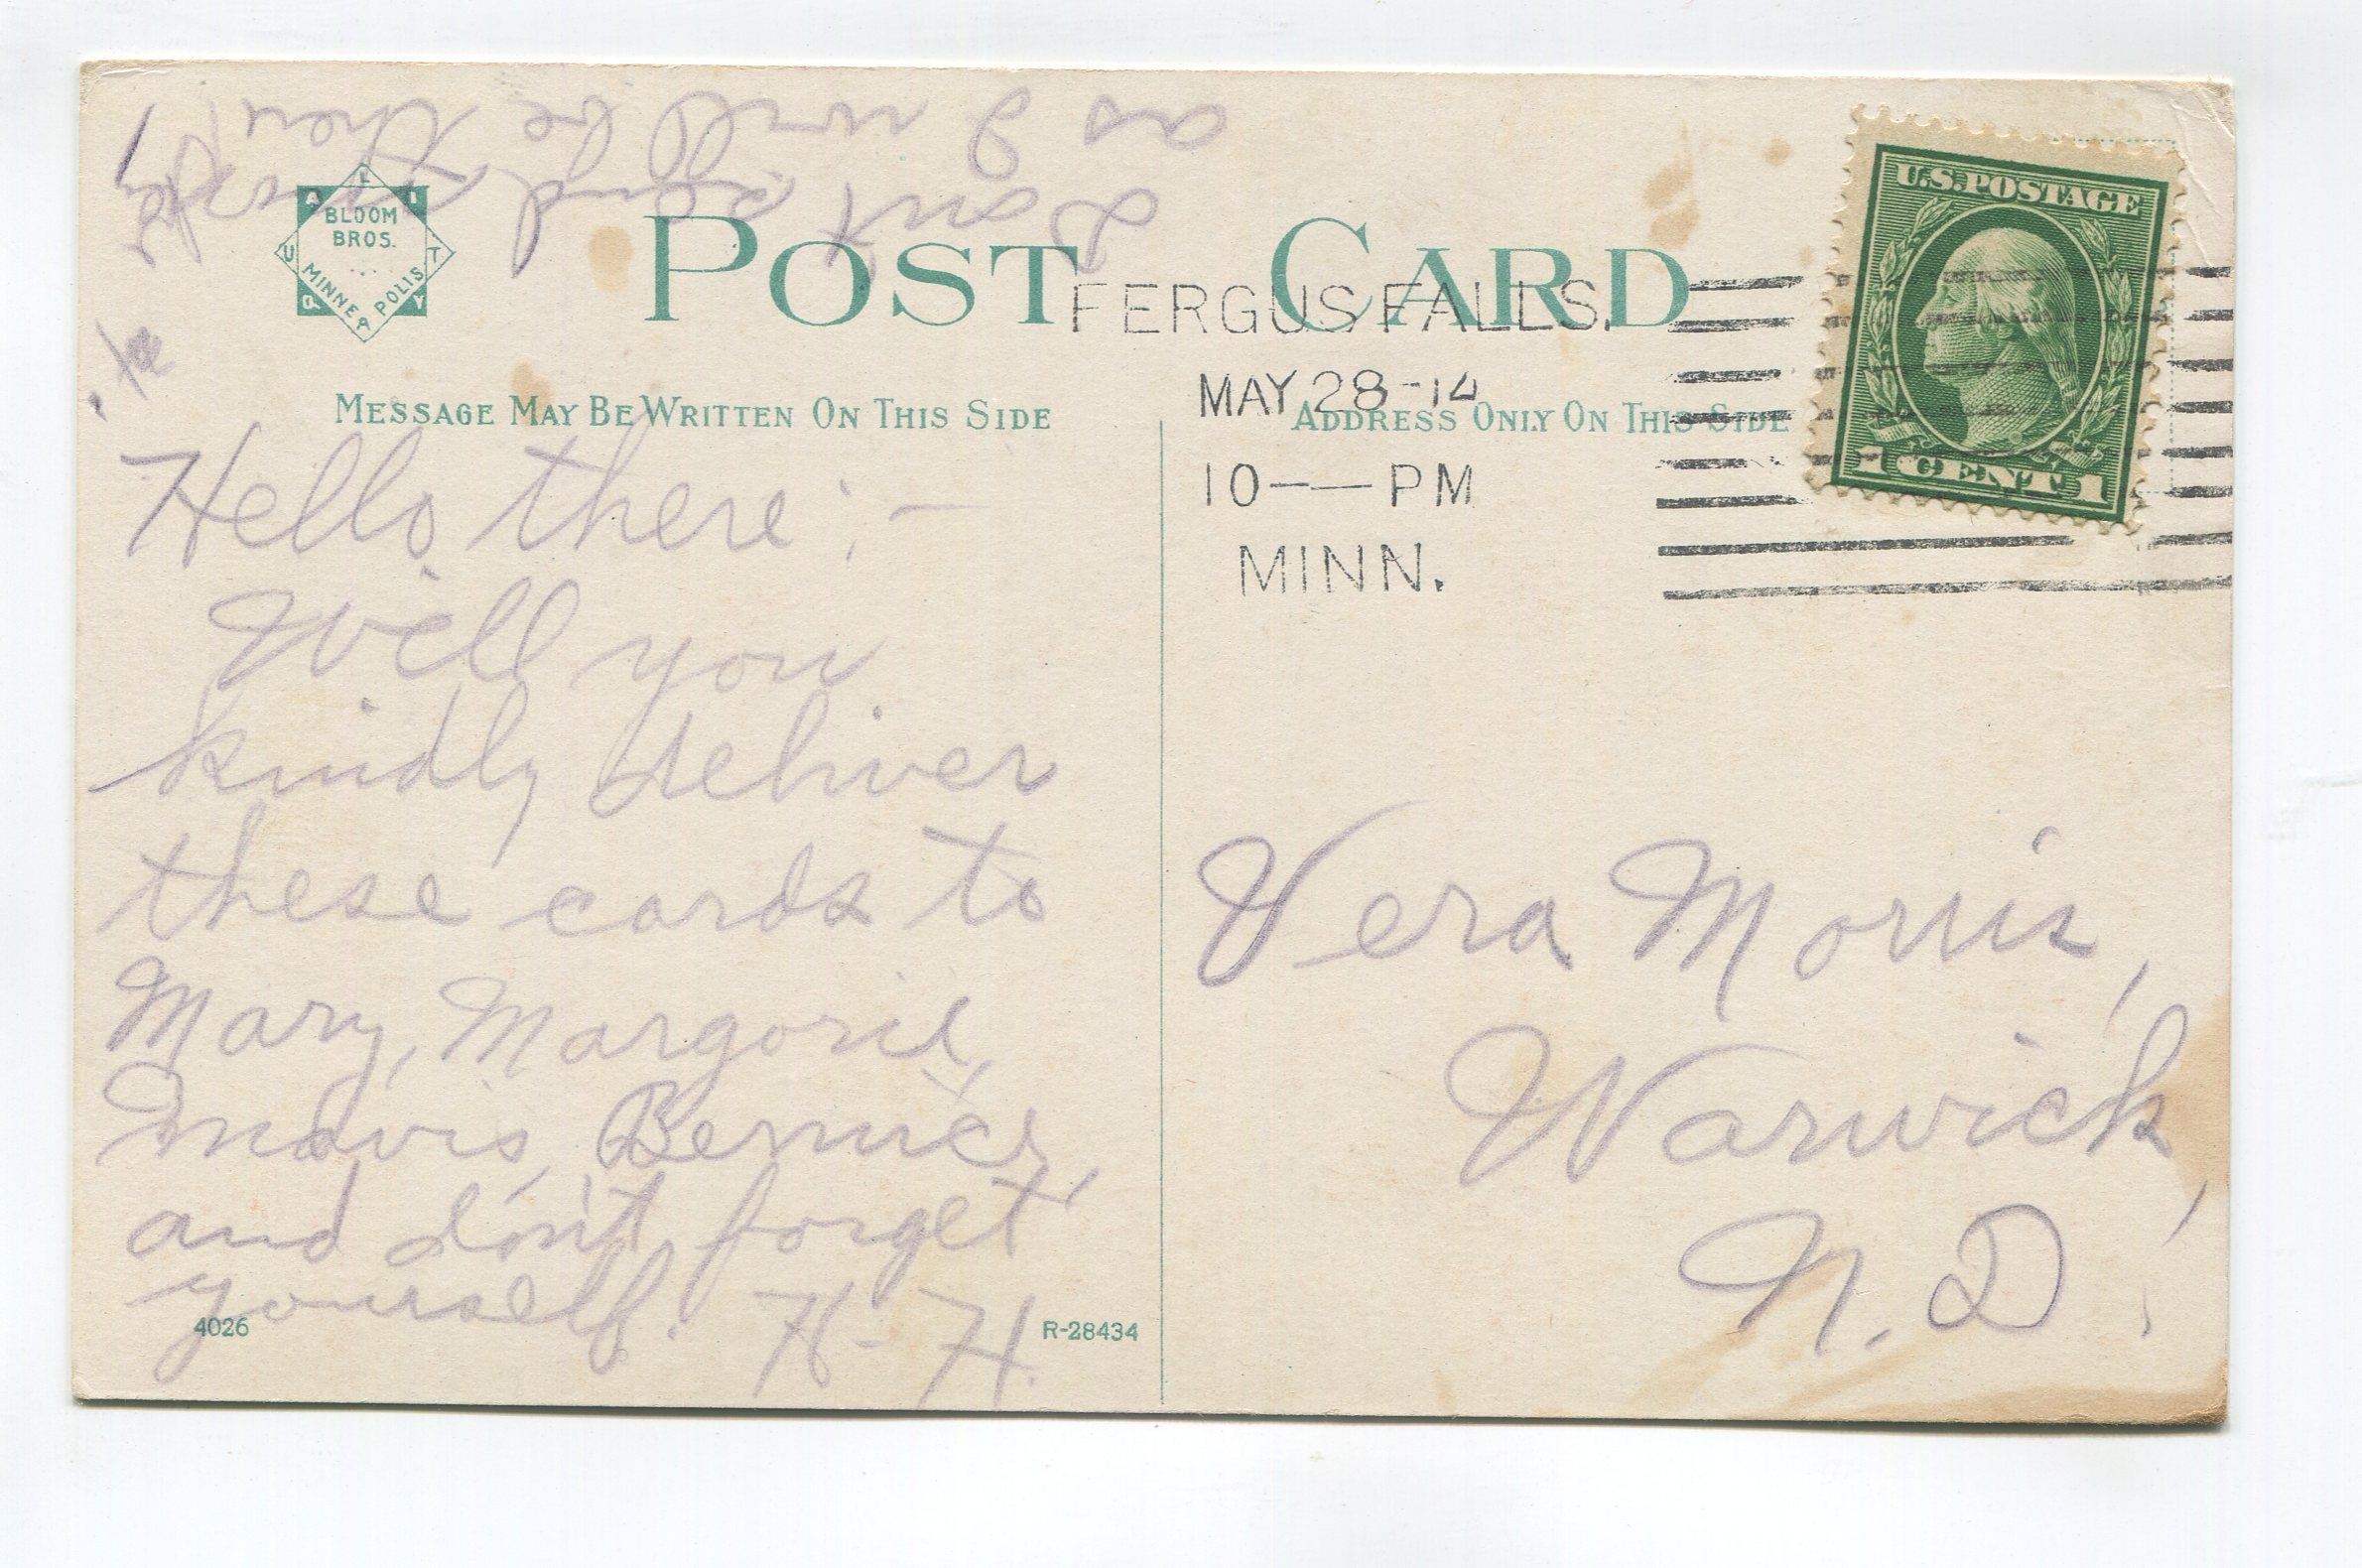 POST CARD
BLOOM
BROS.
MINNEAPOLIS
QUALITY
MESSAGE MAY BE WRITTEN ON THIS SIDE
ADDRESS ONLY ON THIS SIDE
U.S. POSTAGE
1 CENT 1
FERGUS FALLS.
MAY 28-14
10 — PM
MINN.
Hello there: —
Will you
kindly deliver
these cards to
Mary, Margorie,
Mavis, Bernice,
and don't forget
yourself. H. H.
as I will be there
Don't send
Vera Morris,
Warwick,
N. D.
4026
R-28434